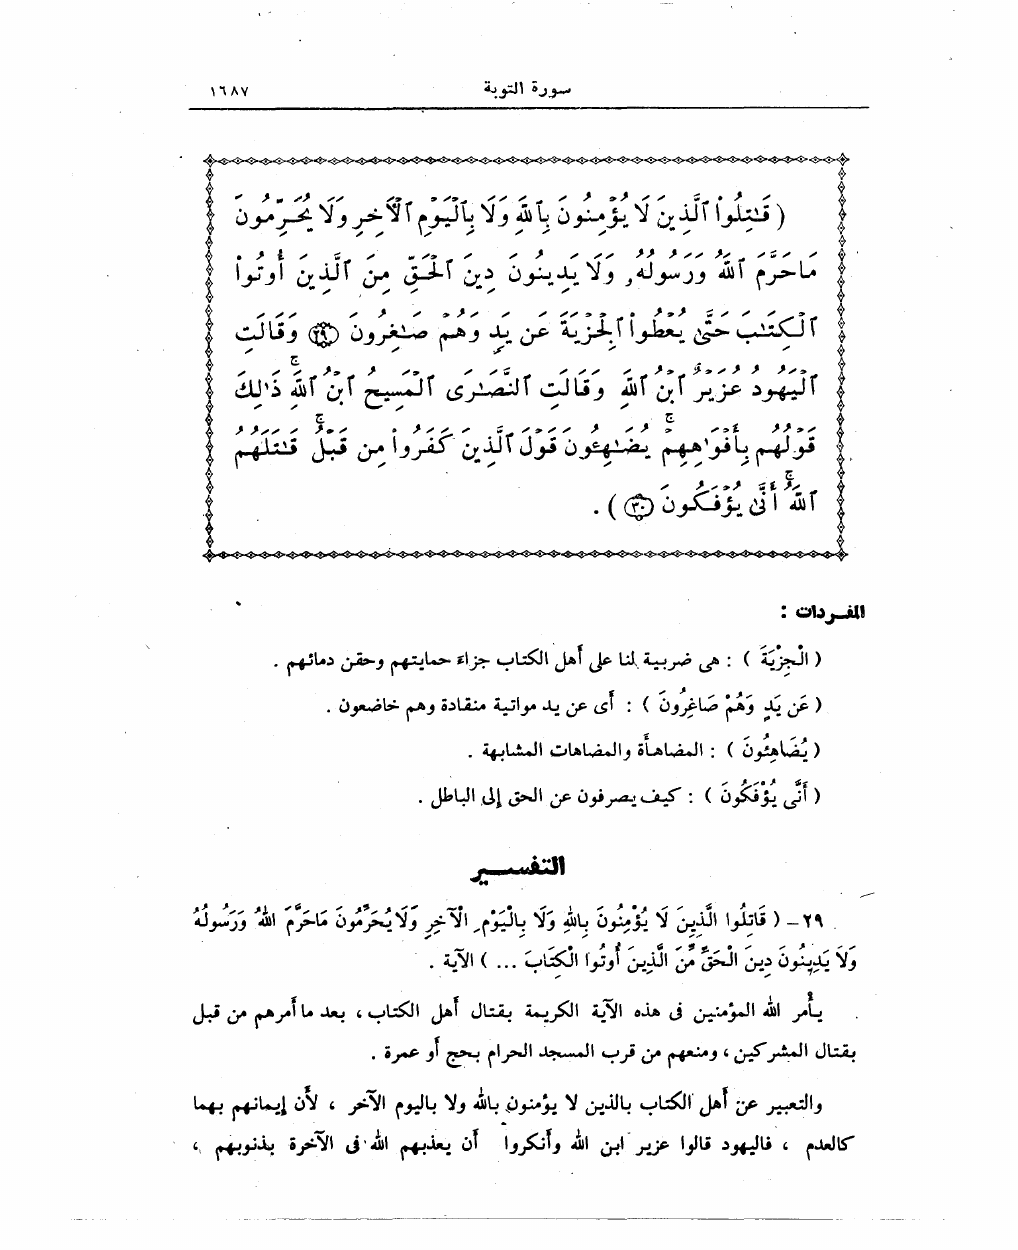 سورة التوبة ١٦٨٧
( قَـٰتِلُوا۟ ٱلَّذِينَ لَا يُؤْمِنُونَ بِٱللَّهِ وَلَا بِٱلْيَوْمِ ٱلْآخِرِ وَلَا يُحَرِّمُونَ
مَا حَرَّمَ ٱللَّهُ وَرَسُولُهُۥ وَلَا يَدِينُونَ دِينَ ٱلْحَقِّ مِنَ ٱلَّذِينَ أُوتُوا۟
ٱلْكِتَـٰبَ حَتَّىٰ يُعْطُوا۟ ٱلْجِزْيَةَ عَن يَدٍ وَهُمْ صَـٰغِرُونَ ٢٩ وَقَالَتِ
ٱلْيَهُودُ عُزَيْرٌ ٱبْنُ ٱللَّهِ وَقَالَتِ ٱلنَّصَـٰرَى ٱلْمَسِيحُ ٱبْنُ ٱللَّهِ ۚ ذَٰلِكَ
قَوْلُهُم بِأَفْوَٰهِهِمْ ۚ يُضَـٰهِـُٔونَ قَوْلَ ٱلَّذِينَ كَفَرُوا۟ مِن قَبْلُ ۚ قَـٰتَلَهُمُ
ٱللَّهُ ۚ أَنَّىٰ يُؤْفَكُونَ ٣٠ ) .
المفـردات :
( الْجِزْيَةَ ) : هى ضريبة لنا على أهل الكتاب جزاء حمايتهم وحقن دمائهم .
( عَن يَدٍ وَهُمْ صَاغِرُونَ ) : أى عن يد مواتية منقادة وهم خاضعون .
( يُضَاهِئُونَ ) : المضاهأة والمضاهات المشابهة .
( أَنَّى يُؤْفَكُونَ ) : كيف يصرفون عن الحق إلى الباطل .
التفســـير
٢٩ – ( قَاتِلُوا الَّذِينَ لَا يُؤْمِنُونَ بِاللهِ وَلَا بِالْيَوْمِ الْآخِرِ وَلَا يُحَرِّمُونَ مَاحَرَّمَ اللهُ وَرَسُولُهُ
وَلَا يَدِينُونَ دِينَ الْحَقِّ مِّنَ الَّذِينَ أُوتُوا الْكِتَابَ ... ) الآية .
يأْمر الله المؤمنين فى هذه الآية الكريمة بقتال أهل الكتاب ، بعد ما أمرهم من قبل
بقتال المشركين ، ومنعهم من قرب المسجد الحرام بحج أو عمرة .
والتعبير عن أهل الكتاب بالذين لا يؤمنون بالله ولا باليوم الآخر ، لأن إيمانهم بهما
كالعدم ، فاليهود قالوا عزير ابن الله وأنكروا أن يعذبهم الله فى الآخرة بذنوبهم ،